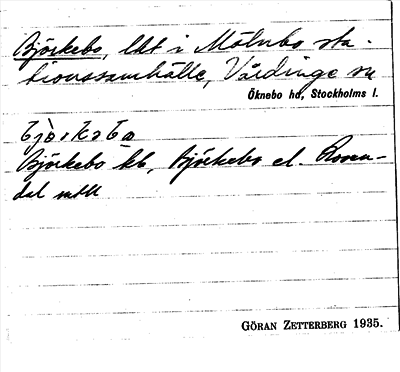 Björkebo, lht i Mölnbo sta-
tionssamhälle, Vårdinge sn
Öknebo hd, Stockholms l.
Björkebo kb, Björkebo el. Rosen-
dal
GÖRAN ZETTERBERG 1935.